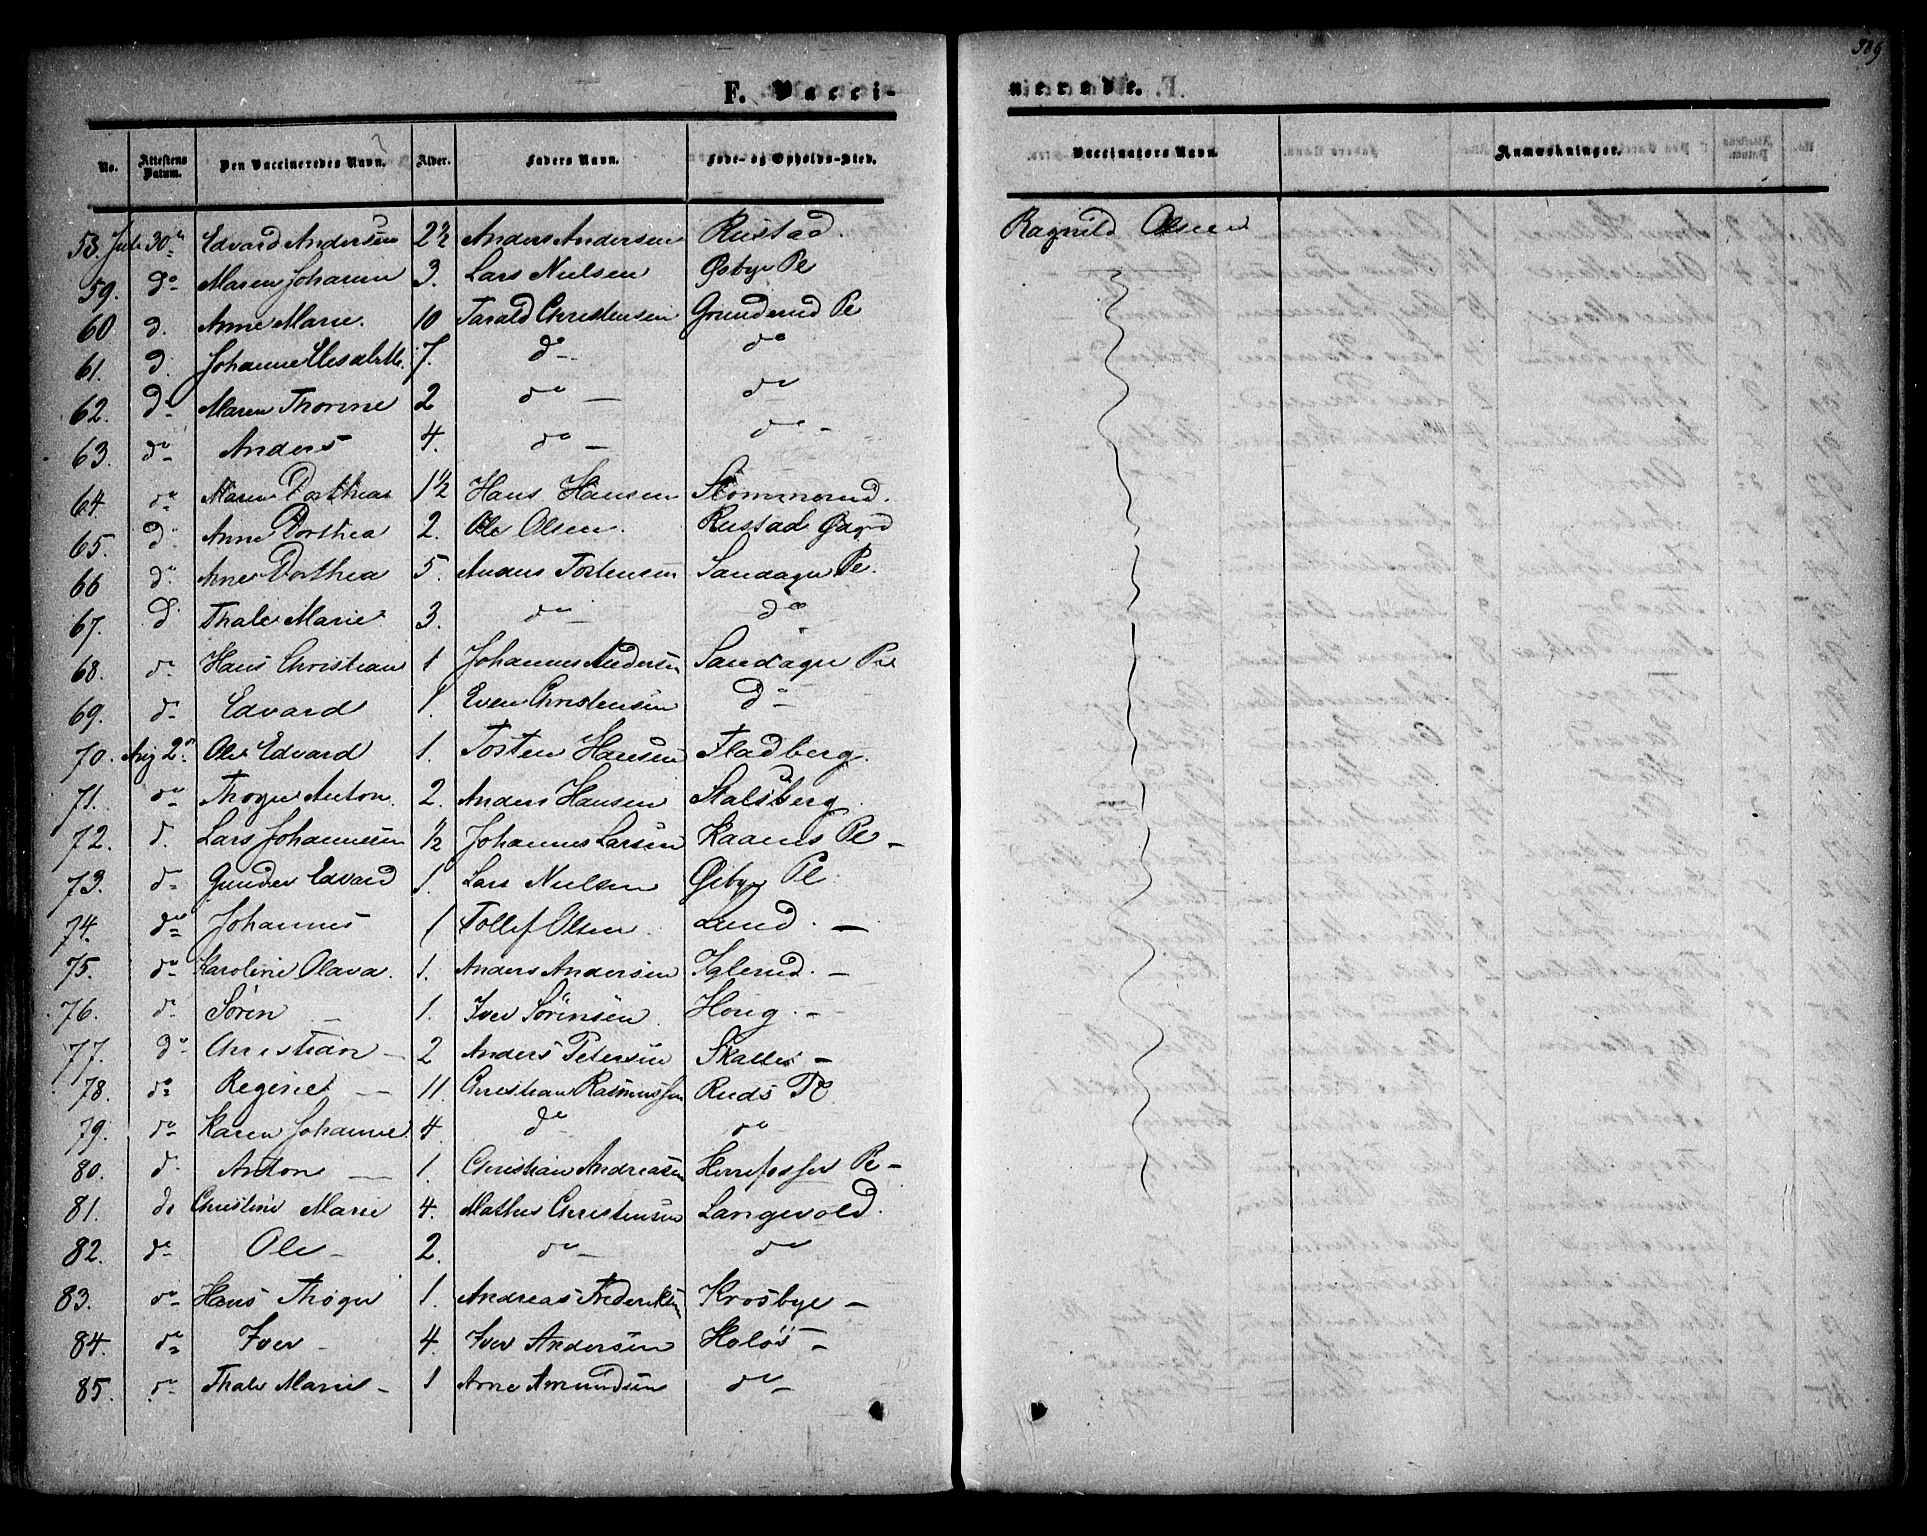 309
F. Vacci-
nerede.
No. Attestens Datum. Den Vaccineredes Navn. Alder. Faders Navn. Føde- og Opholds-Sted. Vaccinators Navn. Anmærkninger.
58. Juli 30te Edvard Andersen 2½ Anders Andersen Rustad. Ragnild Olsen
59. do Maren Johanne 3. Lars Nielsen Østbye Pe
60 d. Anne Marie. 10 Tarald Christensen Grunderud Pe
61. d. Johanne Elisabeth. 7. do do
62. do Maren Thorine 2 do do
63. do Anders 4. do do
64. do Maren Dorthea 1½ Hans Hansen Stommerud.
65. do Anne Dorthea 2. Ole Olsen. Rustad
66 do Anne Dorthea 5. Anders Tostensen Sandager Pe.
67. d Thale Marie 3. do do
68. do Hans Christian 1 Johannes Andersen Sandager Pe
69. do Edvard 1. Even Christensen do
70. Aug 2n Ole Edvard 1. Tosten Hansen Fladberg.
71. do Thøger Anton. 2. Anders Hansen Stalsberg.
72. d. Lars Johannesen ½ Johannes Larsen Kaaens Pe
73. do Gunder Edvard 1. Lars Nielsen Østbye Pe
74. do Johannes 1 Tollef Olsen. Lund.
75. do Karoline Olava. 1. Anders Andersen Iglerud.
76. do Sørin 1. Iver Sørensen Houg.
77. do Christian 2 Anders Petersen Skalle
78. do Regine 11. Christian Rasmussen Ruds Pe
79. do Karen Johanne 4. do do
80. d. Anton 1. Christian Andreasen Herrefosser Pe
81. do Christine Marie 4. Mathis Christensen Langevold.
82. do Ole 2. do do
83. do Hans Thøger 1. Andreas Frederiksen Krosbye
84. do Iver 4. Iver Andersen Holøs
85. do Thale Marie 1 Arne Amundsen do